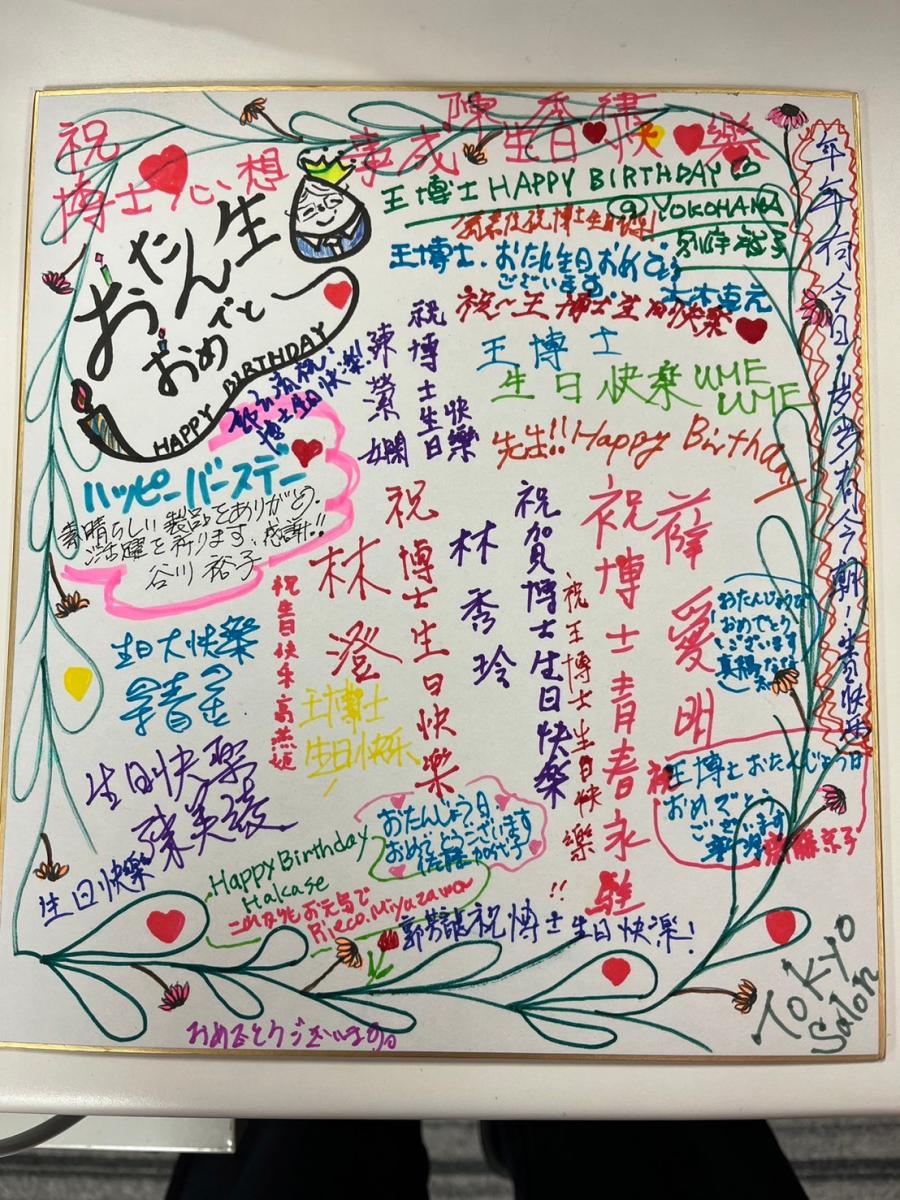 陳秀
祝 生日快樂
博士心想事成
王博士HAPPY BIRTHDAY
@YOKOHAMA
裕子
博士生日快樂!
王博士、おたん生日おめでとう
ございます
祝~王博士生日快樂
王博士
生日快樂UME
UME
先生!!Happy Birthday
おたん生
おめでと
HAPPY BIRTHDAY
博士生日快樂!!
祝博士生日快樂
陳瀠嫻
ハッピーバースデー
素晴らしい製品をありがとう。
ご活躍を祈ります、感謝!!
谷川裕子
年年有今日,歲歲有今朝!生日快樂
薛愛明
祝博士青春永駐
祝王博士生日快樂!!
祝賀博士生日快樂
林秀玲
祝博士生日快樂
林澄
祝生日快乐高燕姬
生日大快樂
王博士
生日快乐
生日快樂
美
生日快樂
おたんじょうび
おめでとう
ございます
王博士おたんじょう日
おめでとう
ございます
京子
おたんじょう日
おめでとうございます
佐藤加代子
Happy Birthday
Hakase
これからもお元気で
Rieco.Miyazawa
郭芳龍祝博士生日快樂!
おめでとうございます。
TOKYO
Salon